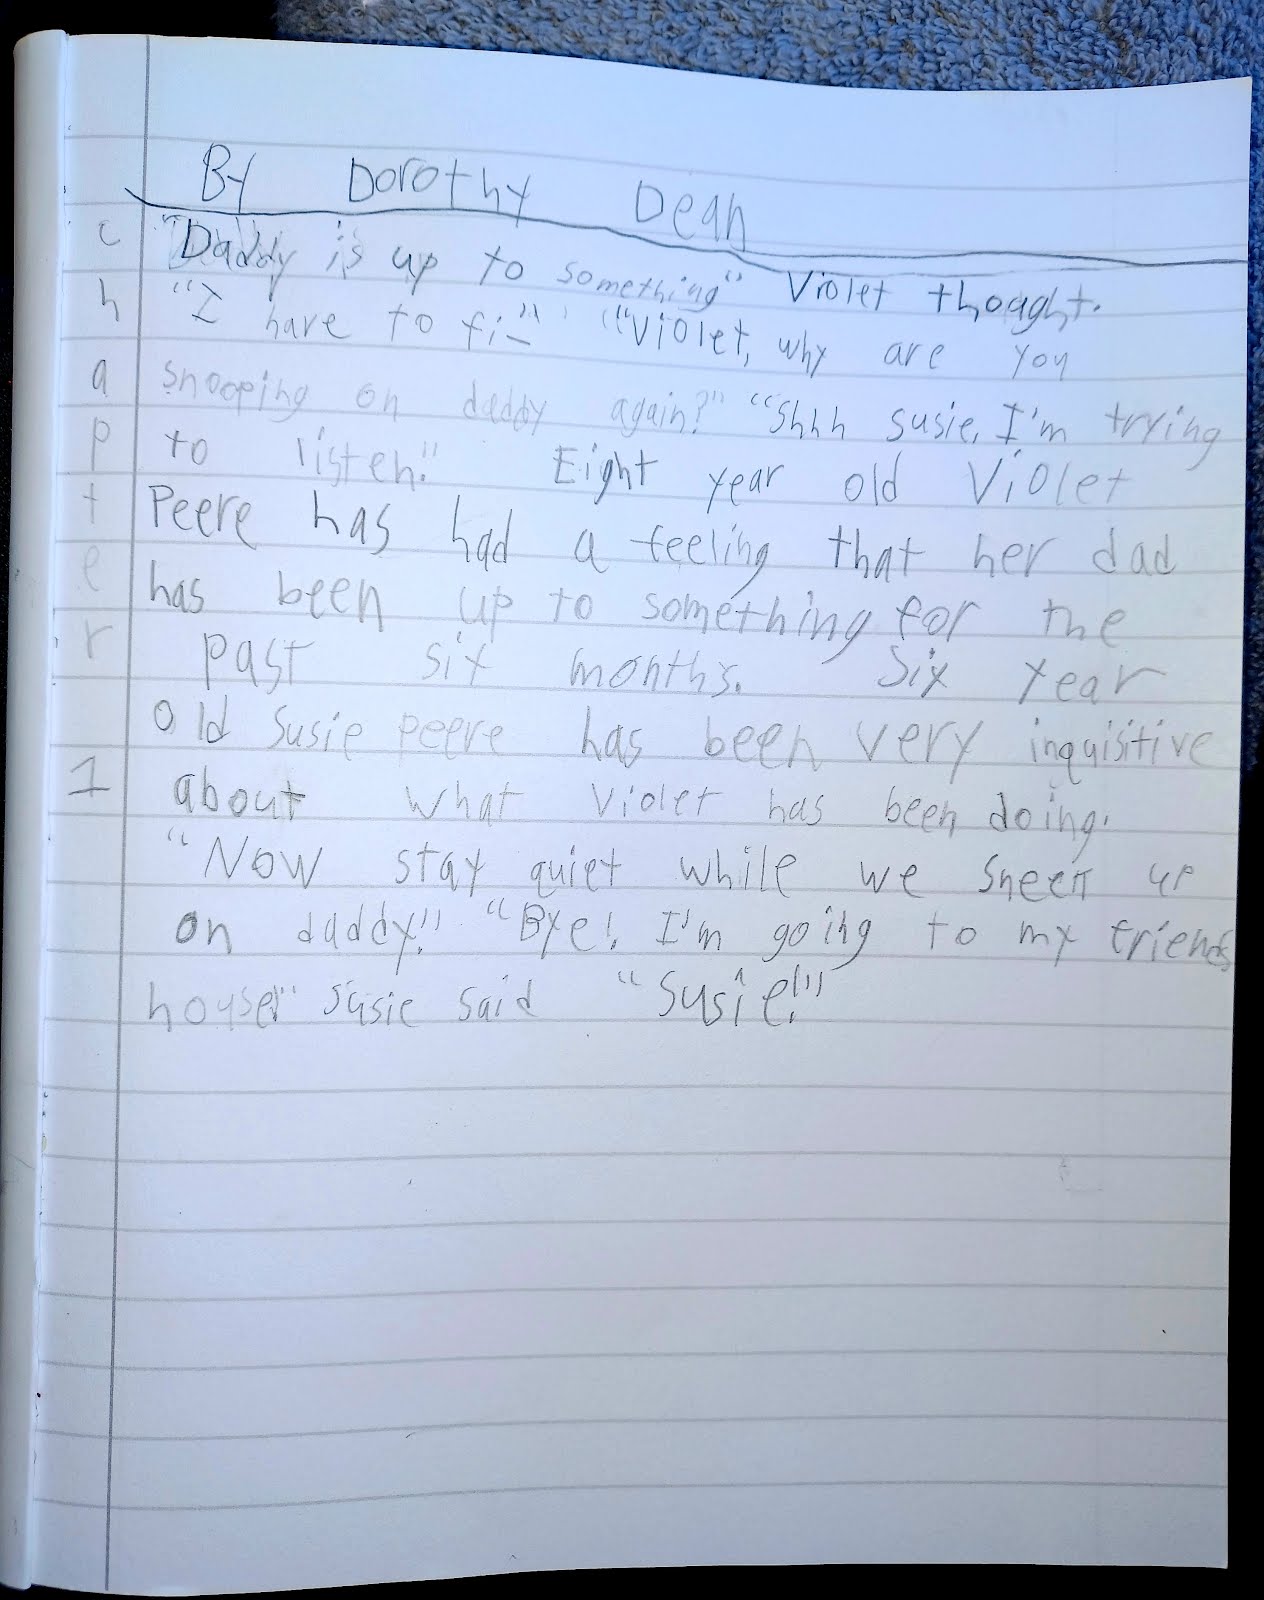 By Dorothy Dean
"Daddy is up to something" Violet thought.
"I have to fi-" "Violet, why are you
snooping on daddy again?" "Shhh susie, I'm trying
to listen." Eight year old Violet
Peere has had a feeling that her dad
has been up to something for the
past six months. Six year
old Susie peere has been very inquisitive
about what Violet has been doing.
"Now stay quiet while we sneek up
on daddy." "Bye! I'm going to my friends
house!" Susie said "Susie!"
chapter 1